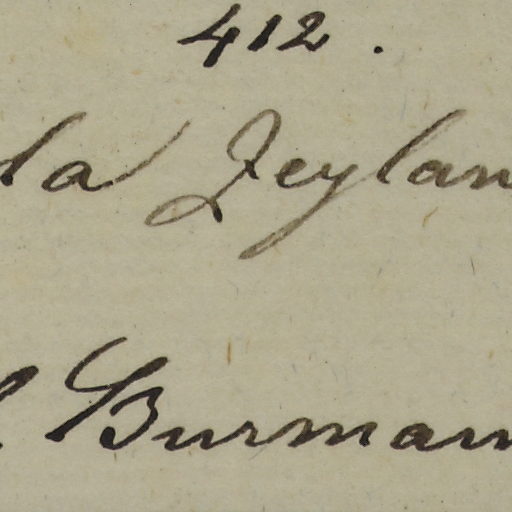 412.
la Zeylan
Burman